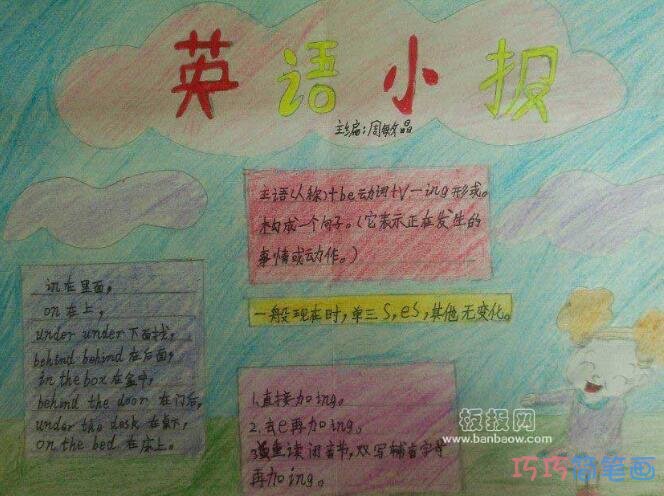 英语小报
主编:周敏晶
主语(人称)+be动词+V-ing形式。
构成一个句子。(它表示正在发生的
事情或动作。)
in在里面,
on在上,
under under下面找,
behind behind在后面,
in the box在盒中,
behind the door在门后,
under the desk在桌下,
on the bed在床上。
一般现在时,单三S,es,其他无变化。
1.直接加ing。
2.去e再加ing。
3.重读闭音节,双写辅音字母
再加ing。
板报网
www.banbaow.com
巧巧简笔画